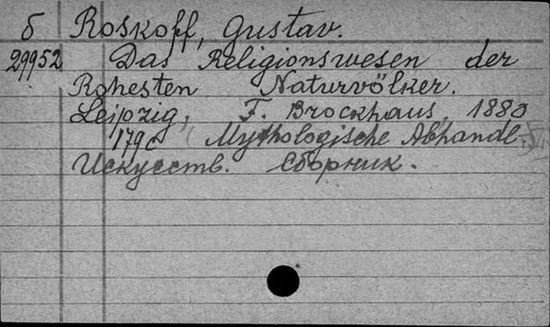 б Roskoff, Gustav.
29952 Das Religionswesen der
Rohesten Naturvölker.
Leipzig, F. Brockhaus, 1880
179c Mythologische Abhandl.
Искусств. Сборник.